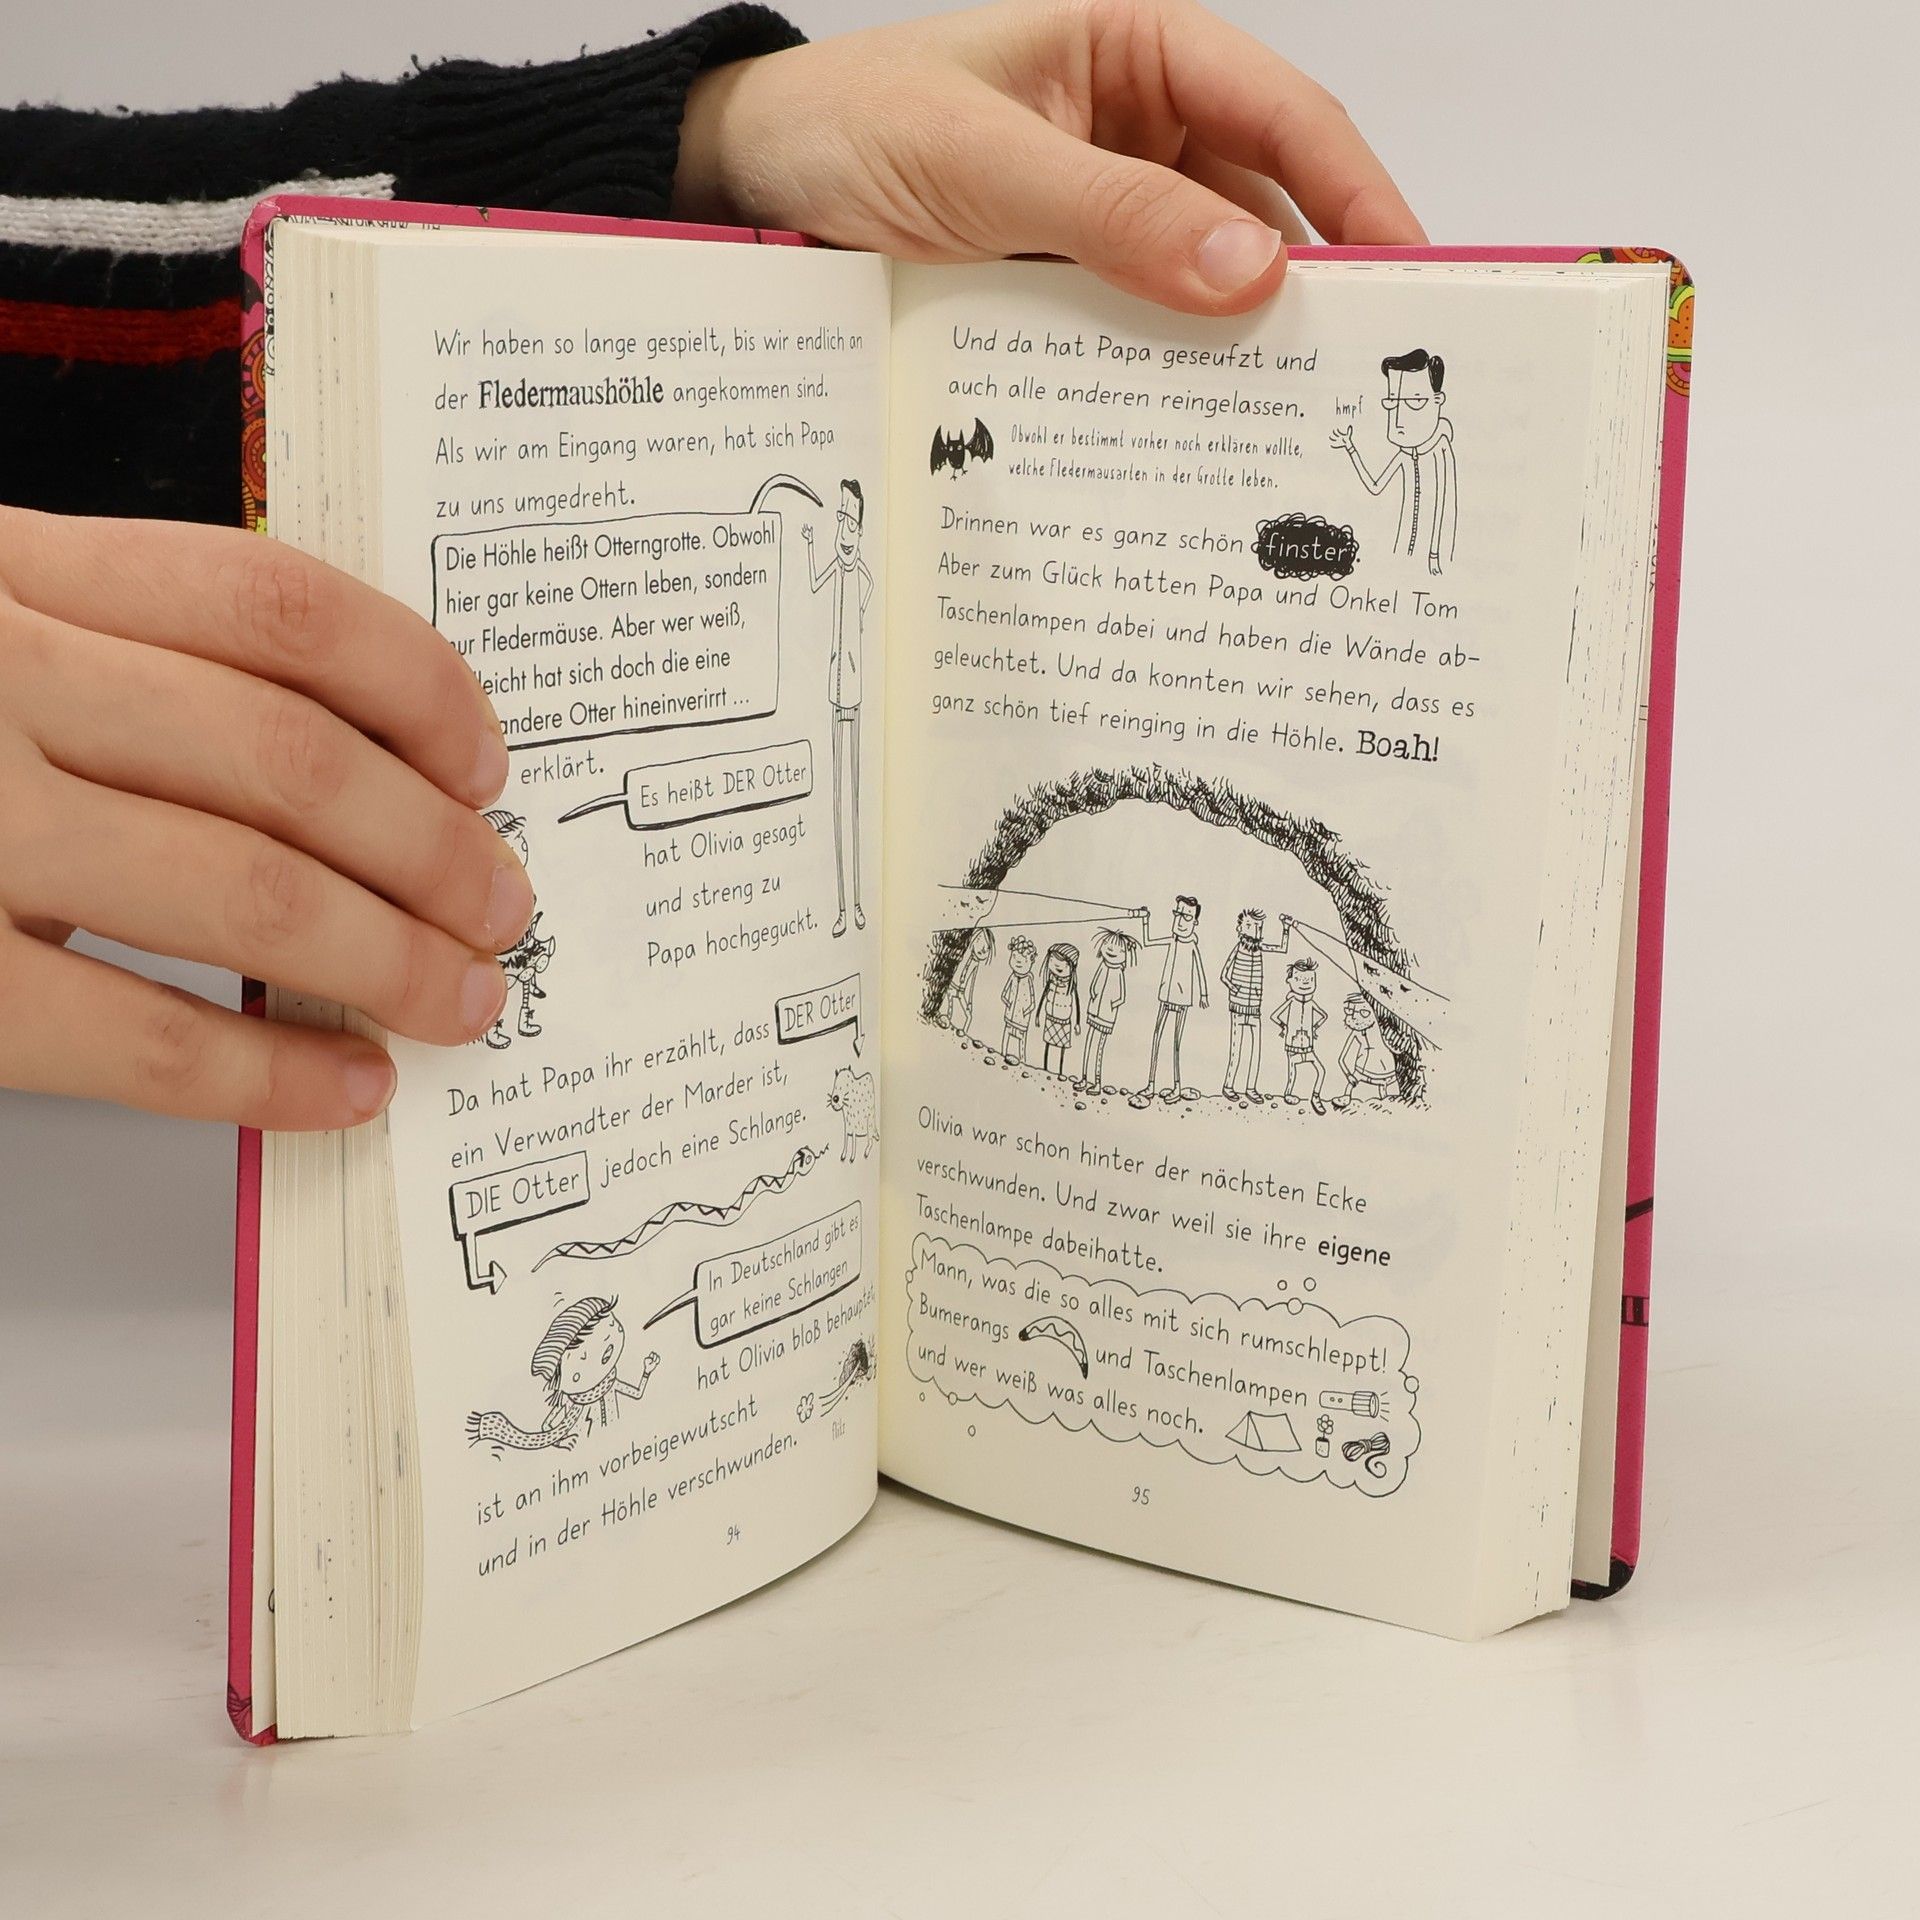 Wir haben so lange gespielt, bis wir endlich an
der Fledermaushöhle angekommen sind.
Als wir am Eingang waren, hat sich Papa
zu uns umgedreht.
Die Höhle heißt Otterngrotte. Obwohl
hier gar keine Ottern leben, sondern
ur Fledermäuse. Aber wer weiß,
leicht hat sich doch die eine
andere Otter hineinverirrt ...
erklärt.
Es heißt DER Otter
hat Olivia gesagt
und streng zu
Papa hochgeguckt.
Da hat Papa ihr erzählt, dass DER Otter
ein Verwandter der Marder ist,
DIE Otter jedoch eine Schlange.
In Deutschland gibt es
gar keine Schlangen
hat Olivia bloß behauptet,
ist an ihm vorbeigewutscht
und in der Höhle verschwunden.
94
Und da hat Papa geseufzt und
auch alle anderen reingelassen.
hmpf
Obwohl er bestimmt vorher noch erklären wollte,
welche Fledermausarten in der Grotte leben.
Drinnen war es ganz schön finster.
Aber zum Glück hatten Papa und Onkel Tom
Taschenlampen dabei und haben die Wände ab-
geleuchtet. Und da konnten wir sehen, dass es
ganz schön tief reinging in die Höhle. Boah!
Olivia war schon hinter der nächsten Ecke
verschwunden. Und zwar weil sie ihre eigene
Taschenlampe dabeihatte.
Mann, was die so alles mit sich rumschleppt!
Bumerangs und Taschenlampen
und wer weiß was alles noch.
95